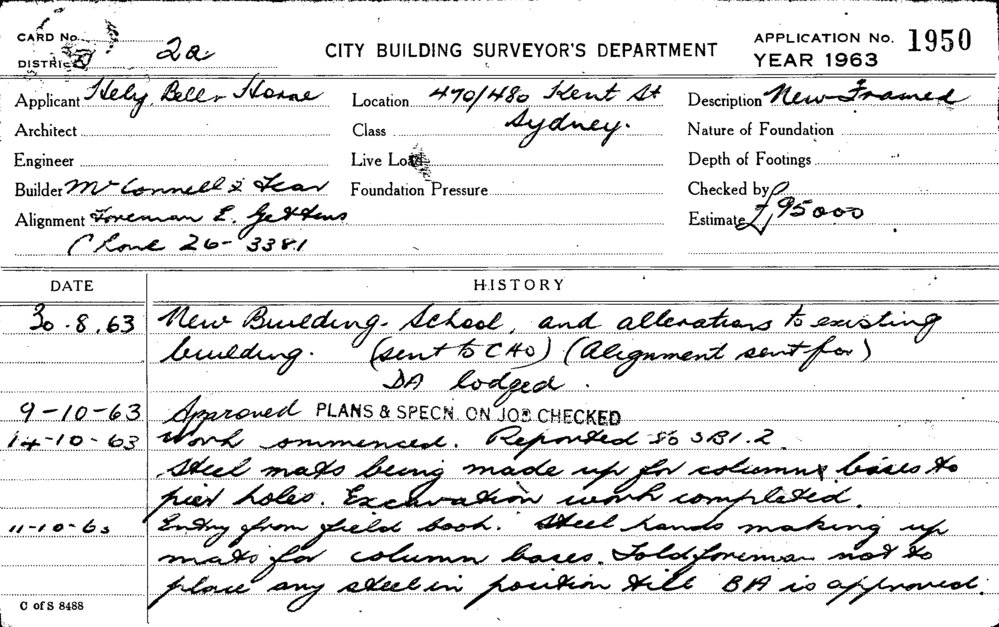 CARD No.
DISTRICT 2a
CITY BUILDING SURVEYOR'S DEPARTMENT
APPLICATION No. 1950
YEAR 1963
Applicant Hely, Bell & Horne
Location 470/480 Kent St
Sydney.
Description New Framed
Architect
Class
Nature of Foundation
Engineer
Live Load
Depth of Footings
Builder McConnell &
Foundation Pressure
Checked by
Alignment Foreman E. Gettens
Phone 26-3381
Estimate £95000
DATE
HISTORY
30.8.63 New Building. School, and alterations to existing
building. (sent to CHO) (Alignment sent for)
DA lodged.
9-10-63 Approved PLANS & SPECN. ON JOB CHECKED
14-10-63 Work ommenced. Reported to SBI.2
Steel mats being made up for column bases to
pier holes. Excavation work completed.
11-10-63 Entry from field book. Steel hands making up
mats for column bases. Told foreman not to
place any steel in position till BA is approved.
C of S 8488